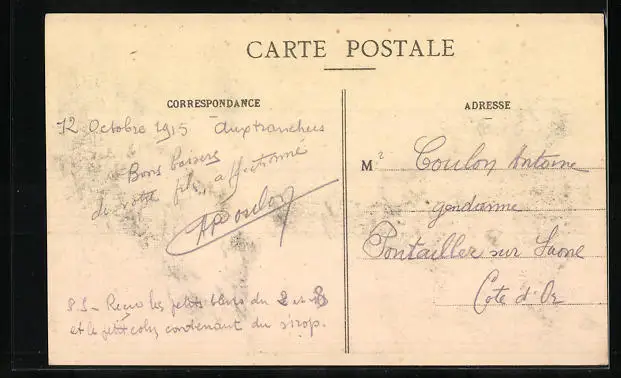 CARTE POSTALE
CORRESPONDANCE
ADRESSE
12 Octobre 1915 Aux tranchées
Bons baisers
de votre fils affectionné
Coulon
P.S. - Reçu les petits bleus du 2 et
et le petit colis contenant du sirop.
M Coulon Antoine
gendarme
Pontailler sur Saone
Côte d'Or